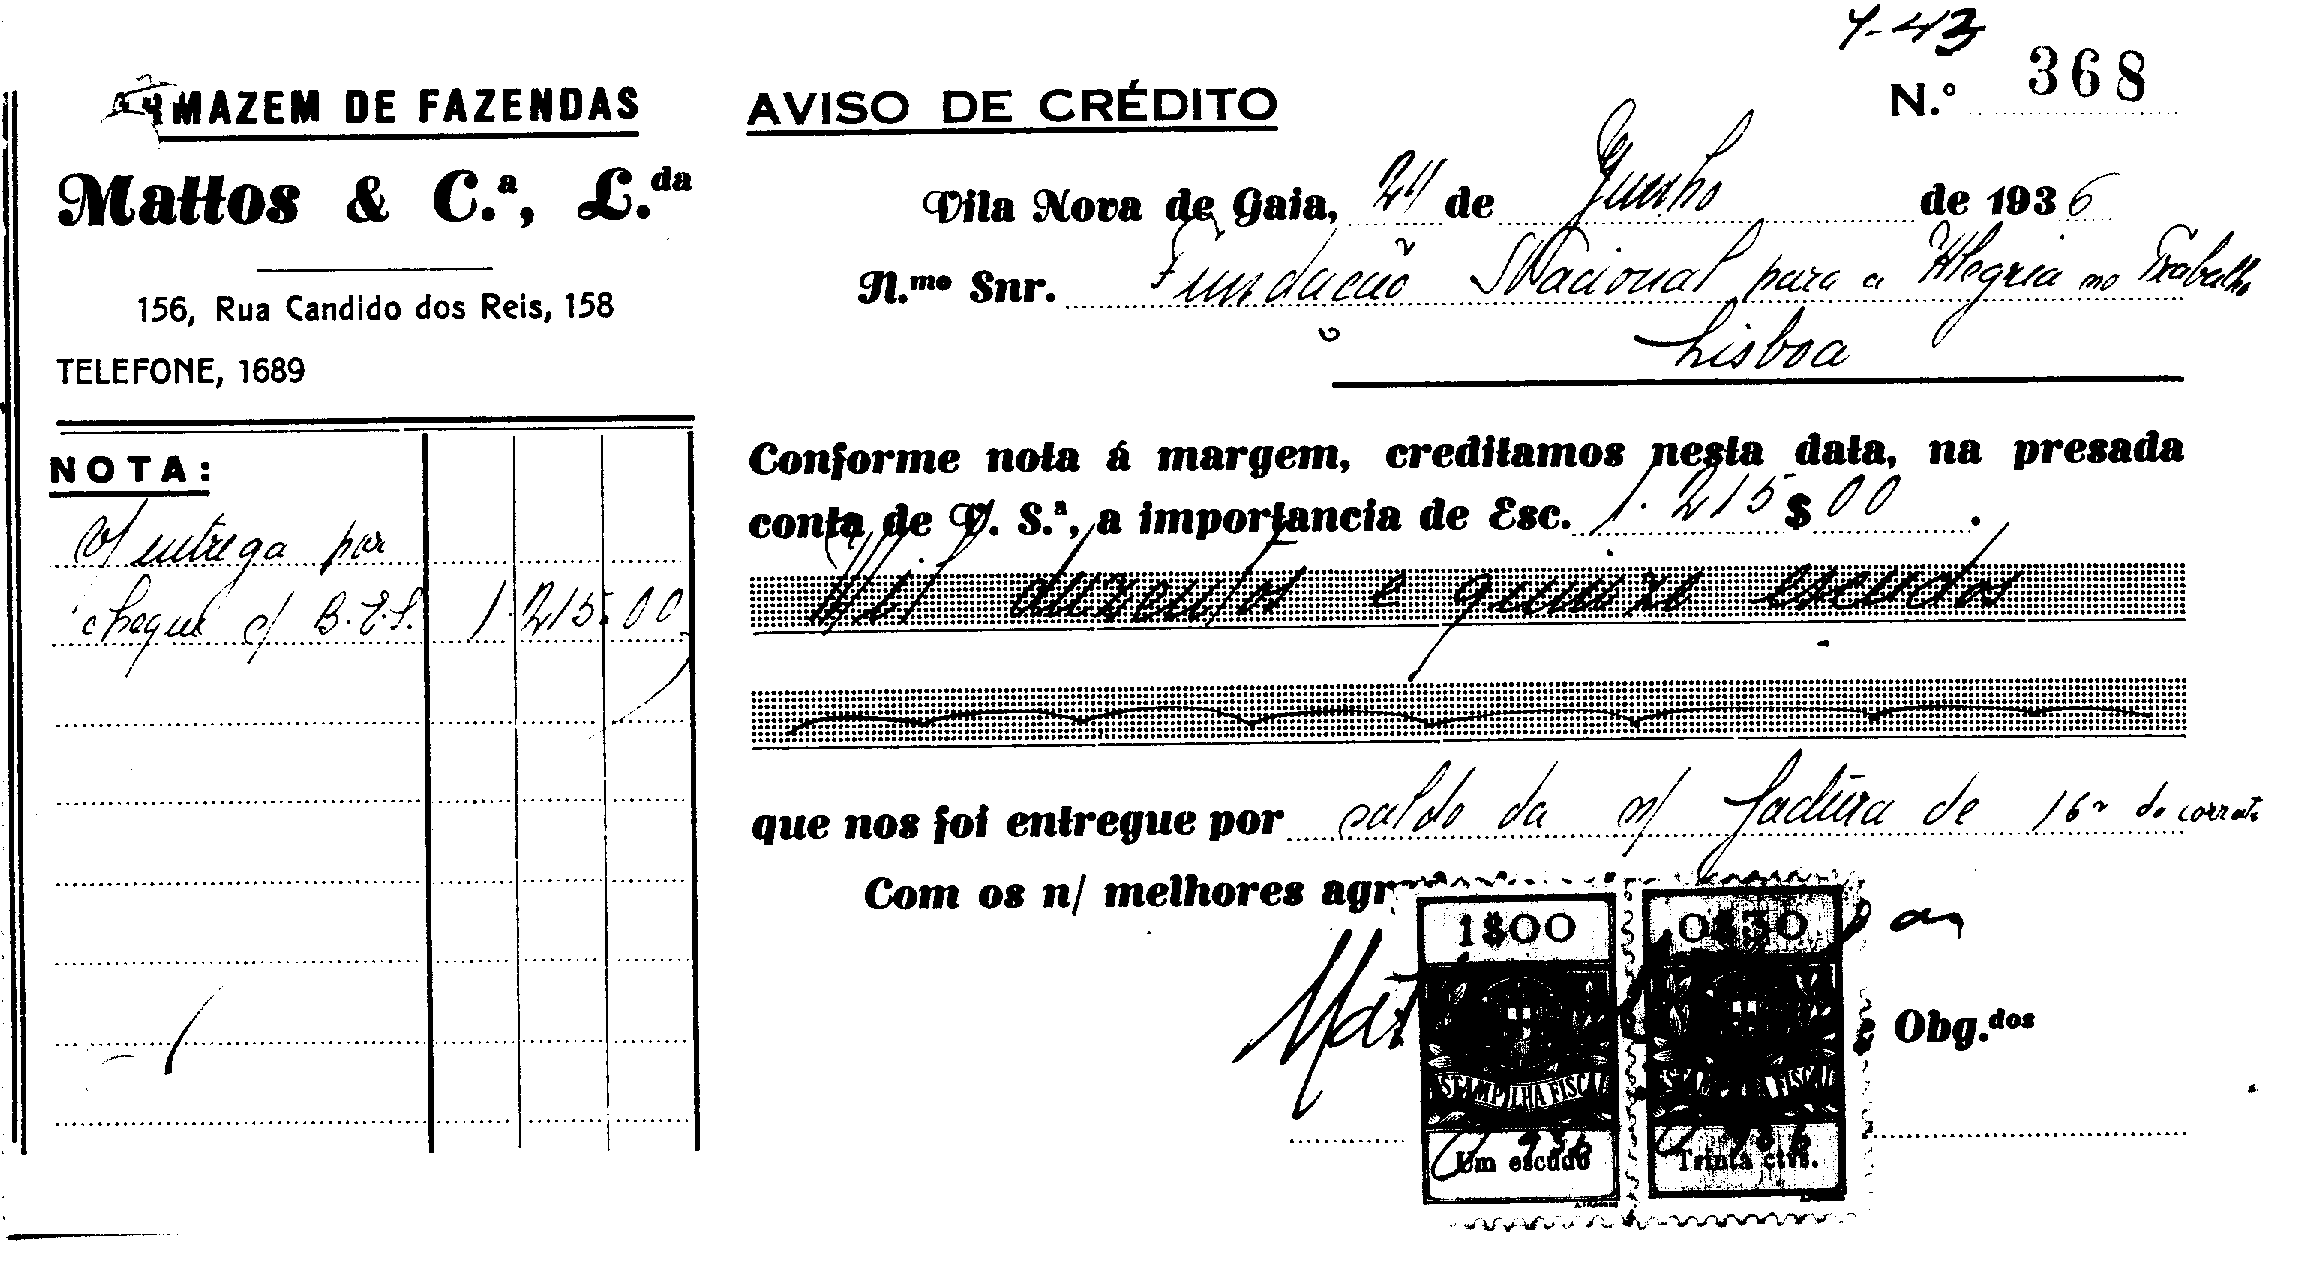 ARMAZEM DE FAZENDAS
Mattos & C.ª, L.da
156, Rua Candido dos Reis, 158
TELEFONE, 1689
NOTA:
V/ entrega por
cheque c/ B.E.S. 1.215.00
7-43
N.º 368
AVISO DE CRÉDITO
Vila Nova de Gaia, 24 de Junho de 1936
Il.mo Snr. Fundação Nacional para a Alegria no Trabalho
Lisboa
Conforme nota á margem, creditamos nesta data, na presada
conta de V. S.ª, a importancia de Esc. 1.215$00.
Mil duzentos e quinze escudos
que nos foi entregue por saldo da n/ factura de 16 do corrente
Com os n/ melhores agr
1$00 0$30
Mat
e Obg.dos
ESTAMPILHA FISCAL ESTAMPILHA FISCAL
936 936
Um escudo Trinta ctvs.